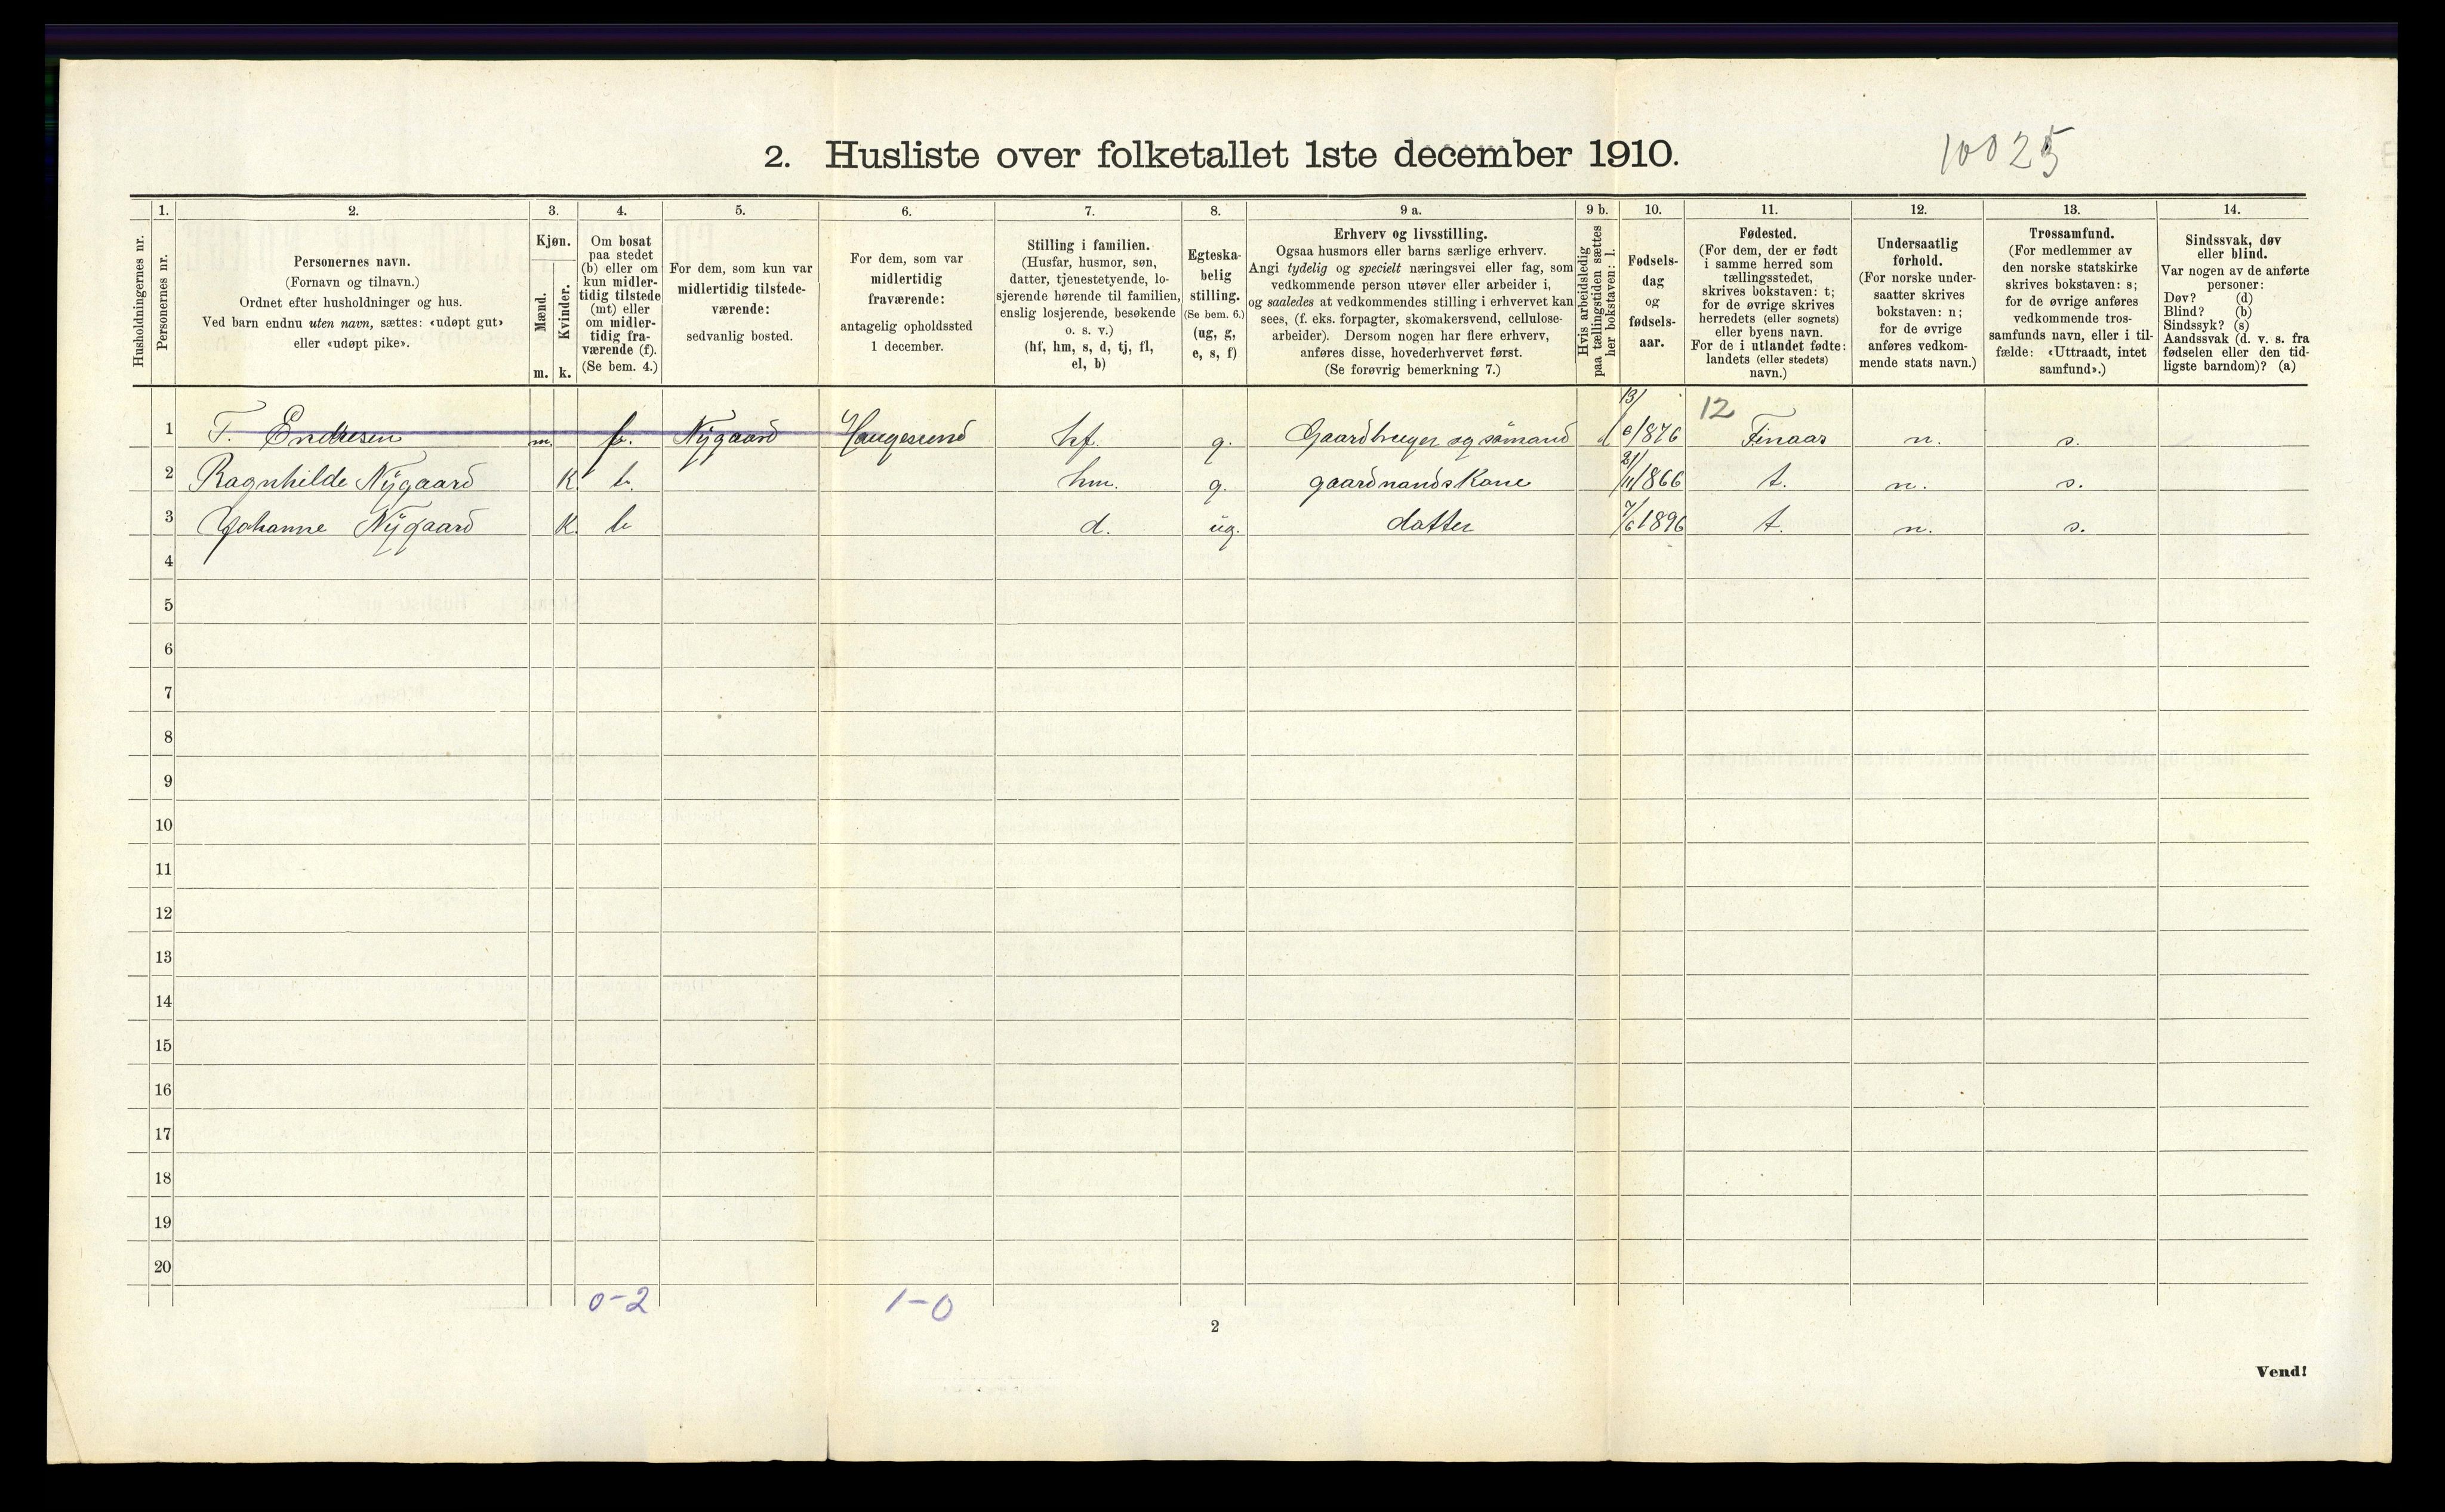 2. Husliste over folketallet 1ste december 1910.
10025
Husholdningernes nr.
1. Personernes nr.
2. Personernes navn.
(Fornavn og tilnavn.)
Ordnet efter husholdninger og hus.
Ved barn endnu uten navn, sættes: «udøpt gut»
eller «udøpt pike».
3. Kjøn.
Mænd. Kvinder.
m. k.
4. Om bosat
paa stedet
(b) eller om
kun midler-
tidig tilstede
(mt) eller
om midler-
tidig fra-
værende (f).
(Se bem. 4.)
5. For dem, som kun var
midlertidig tilstede-
værende:
sedvanlig bosted.
6. For dem, som var
midlertidig
fraværende:
antagelig opholdssted
1 december.
7. Stilling i familien.
(Husfar, husmor, søn,
datter, tjenestetyende, lo-
sjerende hørende til familien,
enslig losjerende, besøkende
o. s. v.)
(hf, hm, s, d, tj, fl,
el, b)
8. Egteska-
belig
stilling.
(Se bem. 6.)
(ug, g,
e, s, f)
9 a. Erhverv og livsstilling.
Ogsaa husmors eller barns særlige erhverv.
Angi tydelig og specielt næringsvei eller fag, som
vedkommende person utøver eller arbeider i,
og saaledes at vedkommendes stilling i erhvervet kan
sees, (f. eks. forpagter, skomakersvend, cellulose-
arbeider). Dersom nogen har flere erhverv,
anføres disse, hovederhvervet først.
(Se forøvrig bemerkning 7.)
9 b. Hvis arbeidsledig
paa tællingstiden sættes
her bokstaven: l.
10. Fødsels-
dag
og
fødsels-
aar.
11. Fødested.
(For dem, der er født
i samme herred som
tællingsstedet,
skrives bokstaven: t;
for de øvrige skrives
herredets (eller sognets)
eller byens navn.
For de i utlandet fødte:
landets (eller stedets)
navn.)
12. Undersaatlig
forhold.
(For norske under-
saatter skrives
bokstaven: n;
for de øvrige
anføres vedkom-
mende stats navn.)
13. Trossamfund.
(For medlemmer av
den norske statskirke
skrives bokstaven: s;
for de øvrige anføres
vedkommende tros-
samfunds navn, eller i til-
fælde: «Uttraadt, intet
samfund».)
14. Sindssvak, døv
eller blind.
Var nogen av de anførte
personer:
Døv? (d)
Blind? (b)
Sindssyk? (s)
Aandssvak (d. v. s. fra
fødselen eller den tid-
ligste barndom)? (a)
12
1 T. Endresen m. f. Nÿgaard Haugesund hf. g. Gaardbruger og sömand 13/ /876 Finaas n. s.
2 Ragnhilde Nÿgaard K. b. hm. g. gaardmandskone 21/11/866 t. n. s.
3 Johanne Nÿgaard K. b d. üg. datter 7/6 1896 t. n. s.
4
5
6
7
8
9
10
11
12
13
14
15
16
17
18
19
20
0-2 1-0
2
Vend!